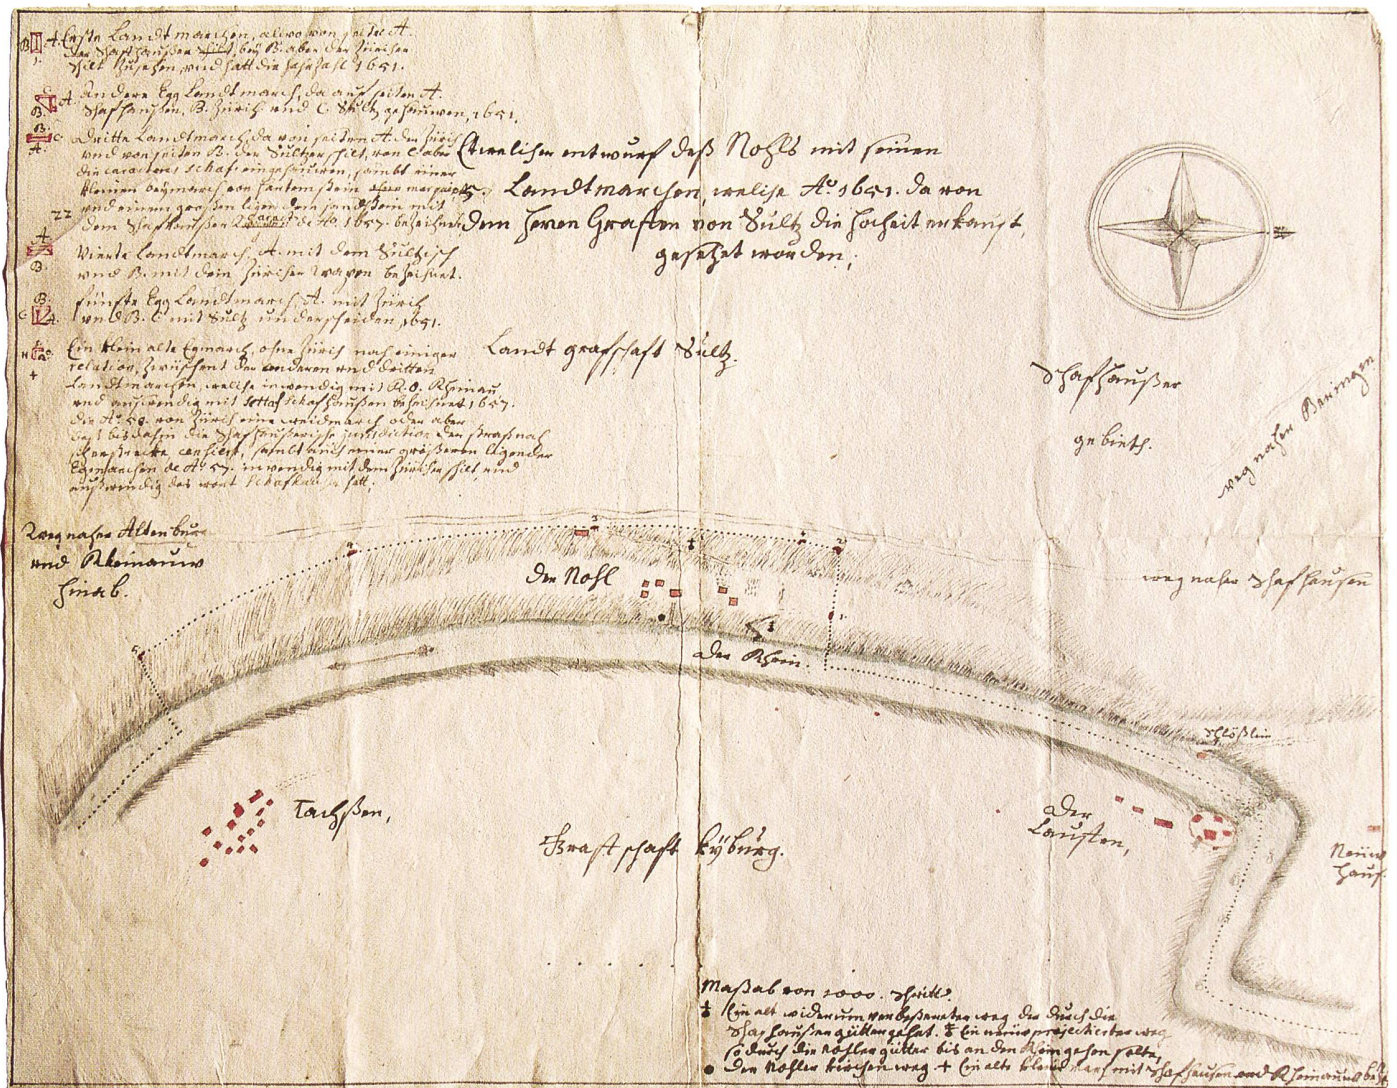 A. Erste Landtmarchen, alwo von seiten A.
der Schafhaußer schilt, bey B. aber der Züricher
schilt zusehen, und hatt die Jahrzahl 1651.
Andere Egg Landtmarch, da auf seiten A.
Schafhaußen, B. Zürich und C. Sultz gehauwen, 1651.
Dritte Landtmarch, da von seiten A. der Zürich
und von seiten B. der Sultzer schilt, von C aber
die caracteres Schaf: eingehauwen, sambt einer
kleinen beymarch von hartem stein
und einem großen ligenden sandstein mit
dem Schafhauser de Aº. 1657. bezeichnet
Vierte Landtmarch, A. mit dem Sultzisch
und B. mit dem Züricher wapen bezeichnet.
Fünfte Egg Landtmarch, A. mit Zürich
und B. C mit Sultz underscheiden, 1651.
Ein klein alte Egmarch, ohne Zürich nach einiger
relation, zwüschent der anderen und dritten
Landtmarchen, welche inwendig mit R. O. Rheinau
und auswendig mit Schafhaußen bezeichnet 1657.
die Aº 59. von Zürich eine weidmarch oder aber
bis dahin die Schafhaußerische Jurisdiction der straß nach
sambt auch einer größeren ligender
Egmarchen de Aº 57. inwendig mit dem Züricher schilt, und
außwendig das wort Schafhausen hatt.
Etwelicher entwurf deß Nohls mit seinen
5. Landtmarchen, welche Aº. 1651. da von
dem Herren Graffen von Sultz die Hocheit erkauft,
gesetzet worden.
Landt grafschaft Sultz.
Schafhaußer
gebieth.
weg naher Beringen
Weg naher Altenburg
und Rheinauw
hinab.
der Nohl
weg naher Schafhausen
der Rhein.
Schlößlin
Tachßen,
Graffschaft Kyburg.
Der
Lauffen,
Neüw
hauß
Maßab von 1000. Schritt.
Ein alt widerum verbeßereter weg der durch die
Schafhaußer gütter gehet. Ein neüw projectierter weg
so durch die Nohler gütter bis an den Rhein gehen solte,
Der Nohler kirchen weg + Ein alte kleine March mit Schafhausen und Rheinauw